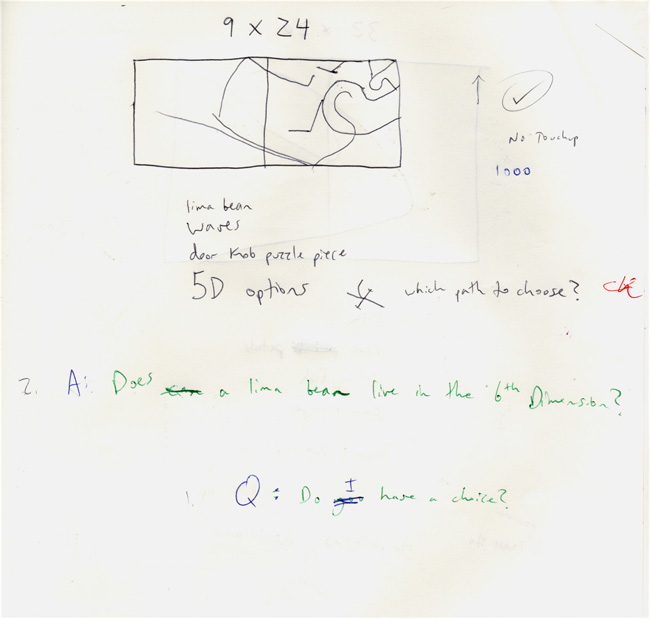 9 x 24
No Touchup
1000
lima bean
waves
door knob puzzle piece
5D options which path to choose?
2. A: Does a lima bean live in the 6th Dimension?
1. Q: Do I have a choice?